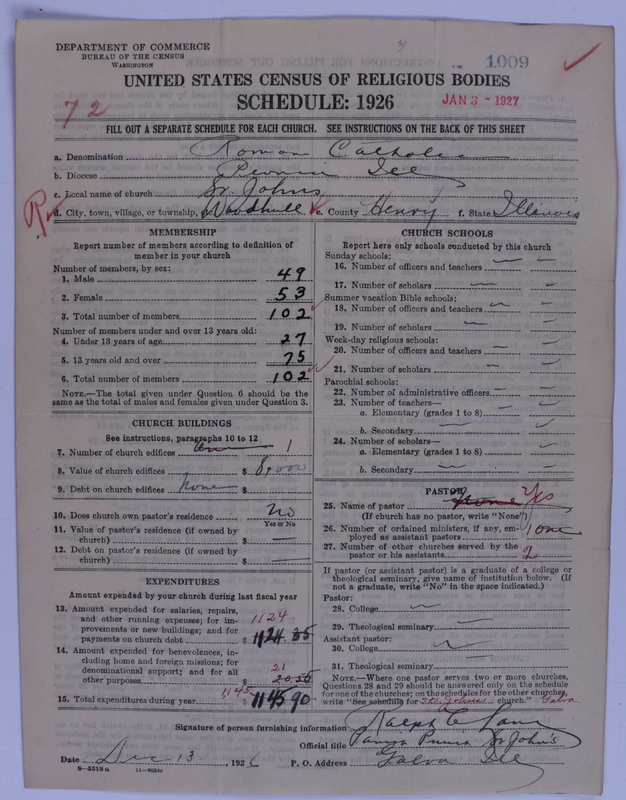 DEPARTMENT OF COMMERCE
BUREAU OF THE CENSUS
WASHINGTON
1009
UNITED STATES CENSUS OF RELIGIOUS BODIES
SCHEDULE: 1926
JAN 3 - 1927
72
FILL OUT A SEPARATE SCHEDULE FOR EACH CHURCH. SEE INSTRUCTIONS ON THE BACK OF THIS SHEET
a. Denomination Roman Catholic
b. Diocese Peoria Ill
c. Local name of church St. Johns
d. City, town, village, or township Woodhull e. County Henry f. State Illinois
MEMBERSHIP
Report number of members according to definition of
member in your church
Number of members, by sex:
1. Male 49
2. Female 53
3. Total number of members 102
Number of members under and over 13 years old:
4. Under 13 years of age 27
5. 13 years old and over 75
6. Total number of members 102
NOTE.—The total given under Question 6 should be the
same as the total of males and females given under Question 3.
CHURCH BUILDINGS
See instructions, paragraphs 10 to 12
7. Number of church edifices one 1
8. Value of church edifices $ 8,000
9. Debt on church edifices none $
10. Does church own pastor's residence No
Yes or No
11. Value of pastor's residence (if owned by
church) $ —
12. Debt on pastor's residence (if owned by
church) $ —
EXPENDITURES
Amount expended by your church during last fiscal year
13. Amount expended for salaries, repairs,
and other running expenses; for im- 1124
provements or new buildings; and for
payments on church debt $ 1124 35
14. Amount expended for benevolences, in-
cluding home and foreign missions; for
denominational support; and for all 21
other purposes $ 20 55
15. Total expenditures during year 1145 $ 1145 90
CHURCH SCHOOLS
Report here only schools conducted by this church
Sunday schools:
16. Number of officers and teachers
17. Number of scholars
Summer vacation Bible schools:
18. Number of officers and teachers
19. Number of scholars
Week-day religious schools:
20. Number of officers and teachers
21. Number of scholars
Parochial schools:
22. Number of administrative officers
23. Number of teachers—
a. Elementary (grades 1 to 8)
b. Secondary
24. Number of scholars—
a. Elementary (grades 1 to 8)
b. Secondary
PASTOR
25. Name of pastor None Yes
(If church has no pastor, write "None")
26. Number of ordained ministers, if any, em-
ployed as assistant pastors 1 one
27. Number of other churches served by the
pastor or his assistants 2
If pastor (or assistant pastor) is a graduate of a college or
theological seminary, give name of institution below. (If
not a graduate, write "No" in the space indicated.)
Pastor:
28. College
29. Theological seminary
Assistant pastor:
30. College
31. Theological seminary
NOTE.—Where one pastor serves two or more churches,
Questions 28 and 29 should be answered only on the schedule
for one of the churches; on the schedules for the other churches,
write "See schedule for St. Johns church." Galva
Signature of person furnishing information Ralph C
Official title St John's
Date Dec 13, 1926 P. O. Address Galva Ill
8—5518a 11—8054a